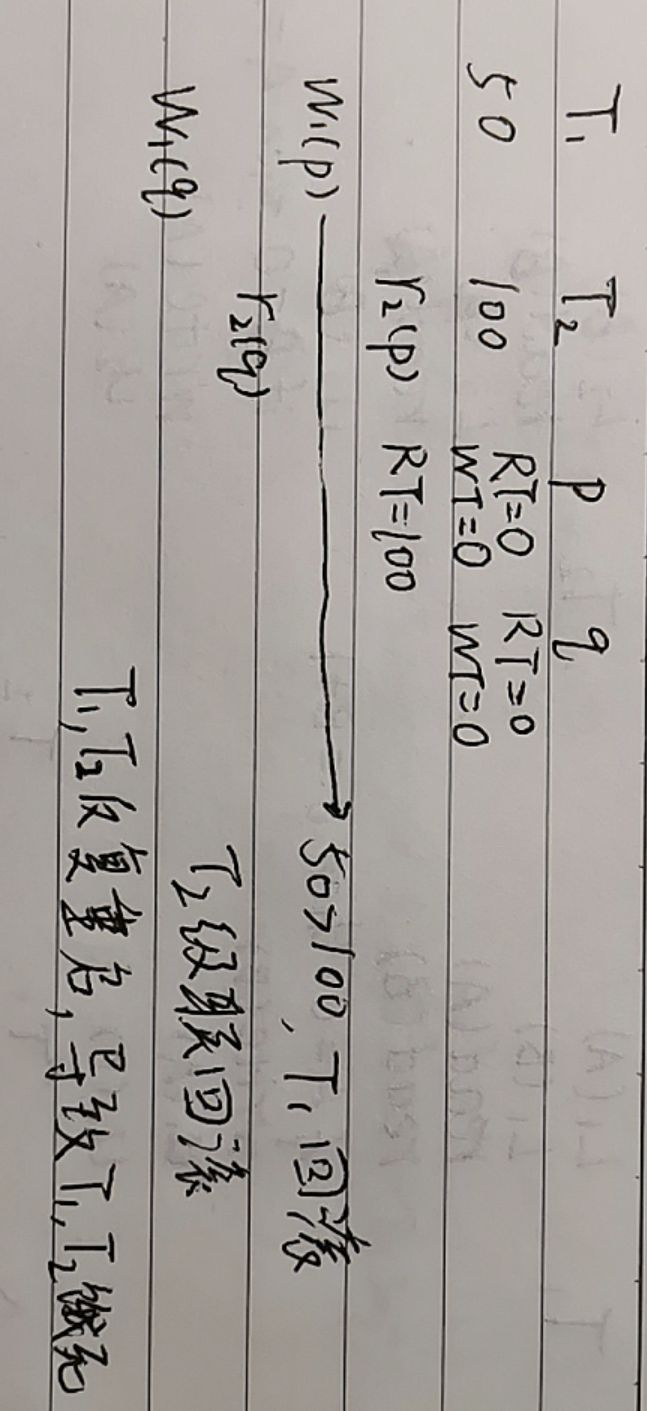 T₁ T₂ p q
50 100 RT=0 WT=0 RT=0 WT=0
r₂(p) RT=100
W₁(p) → 50>100, T₁回滚
r₂(q) T₂级联回滚
W₁(q)
T₁,T₂反复重启,导致T₁,T₂饿死